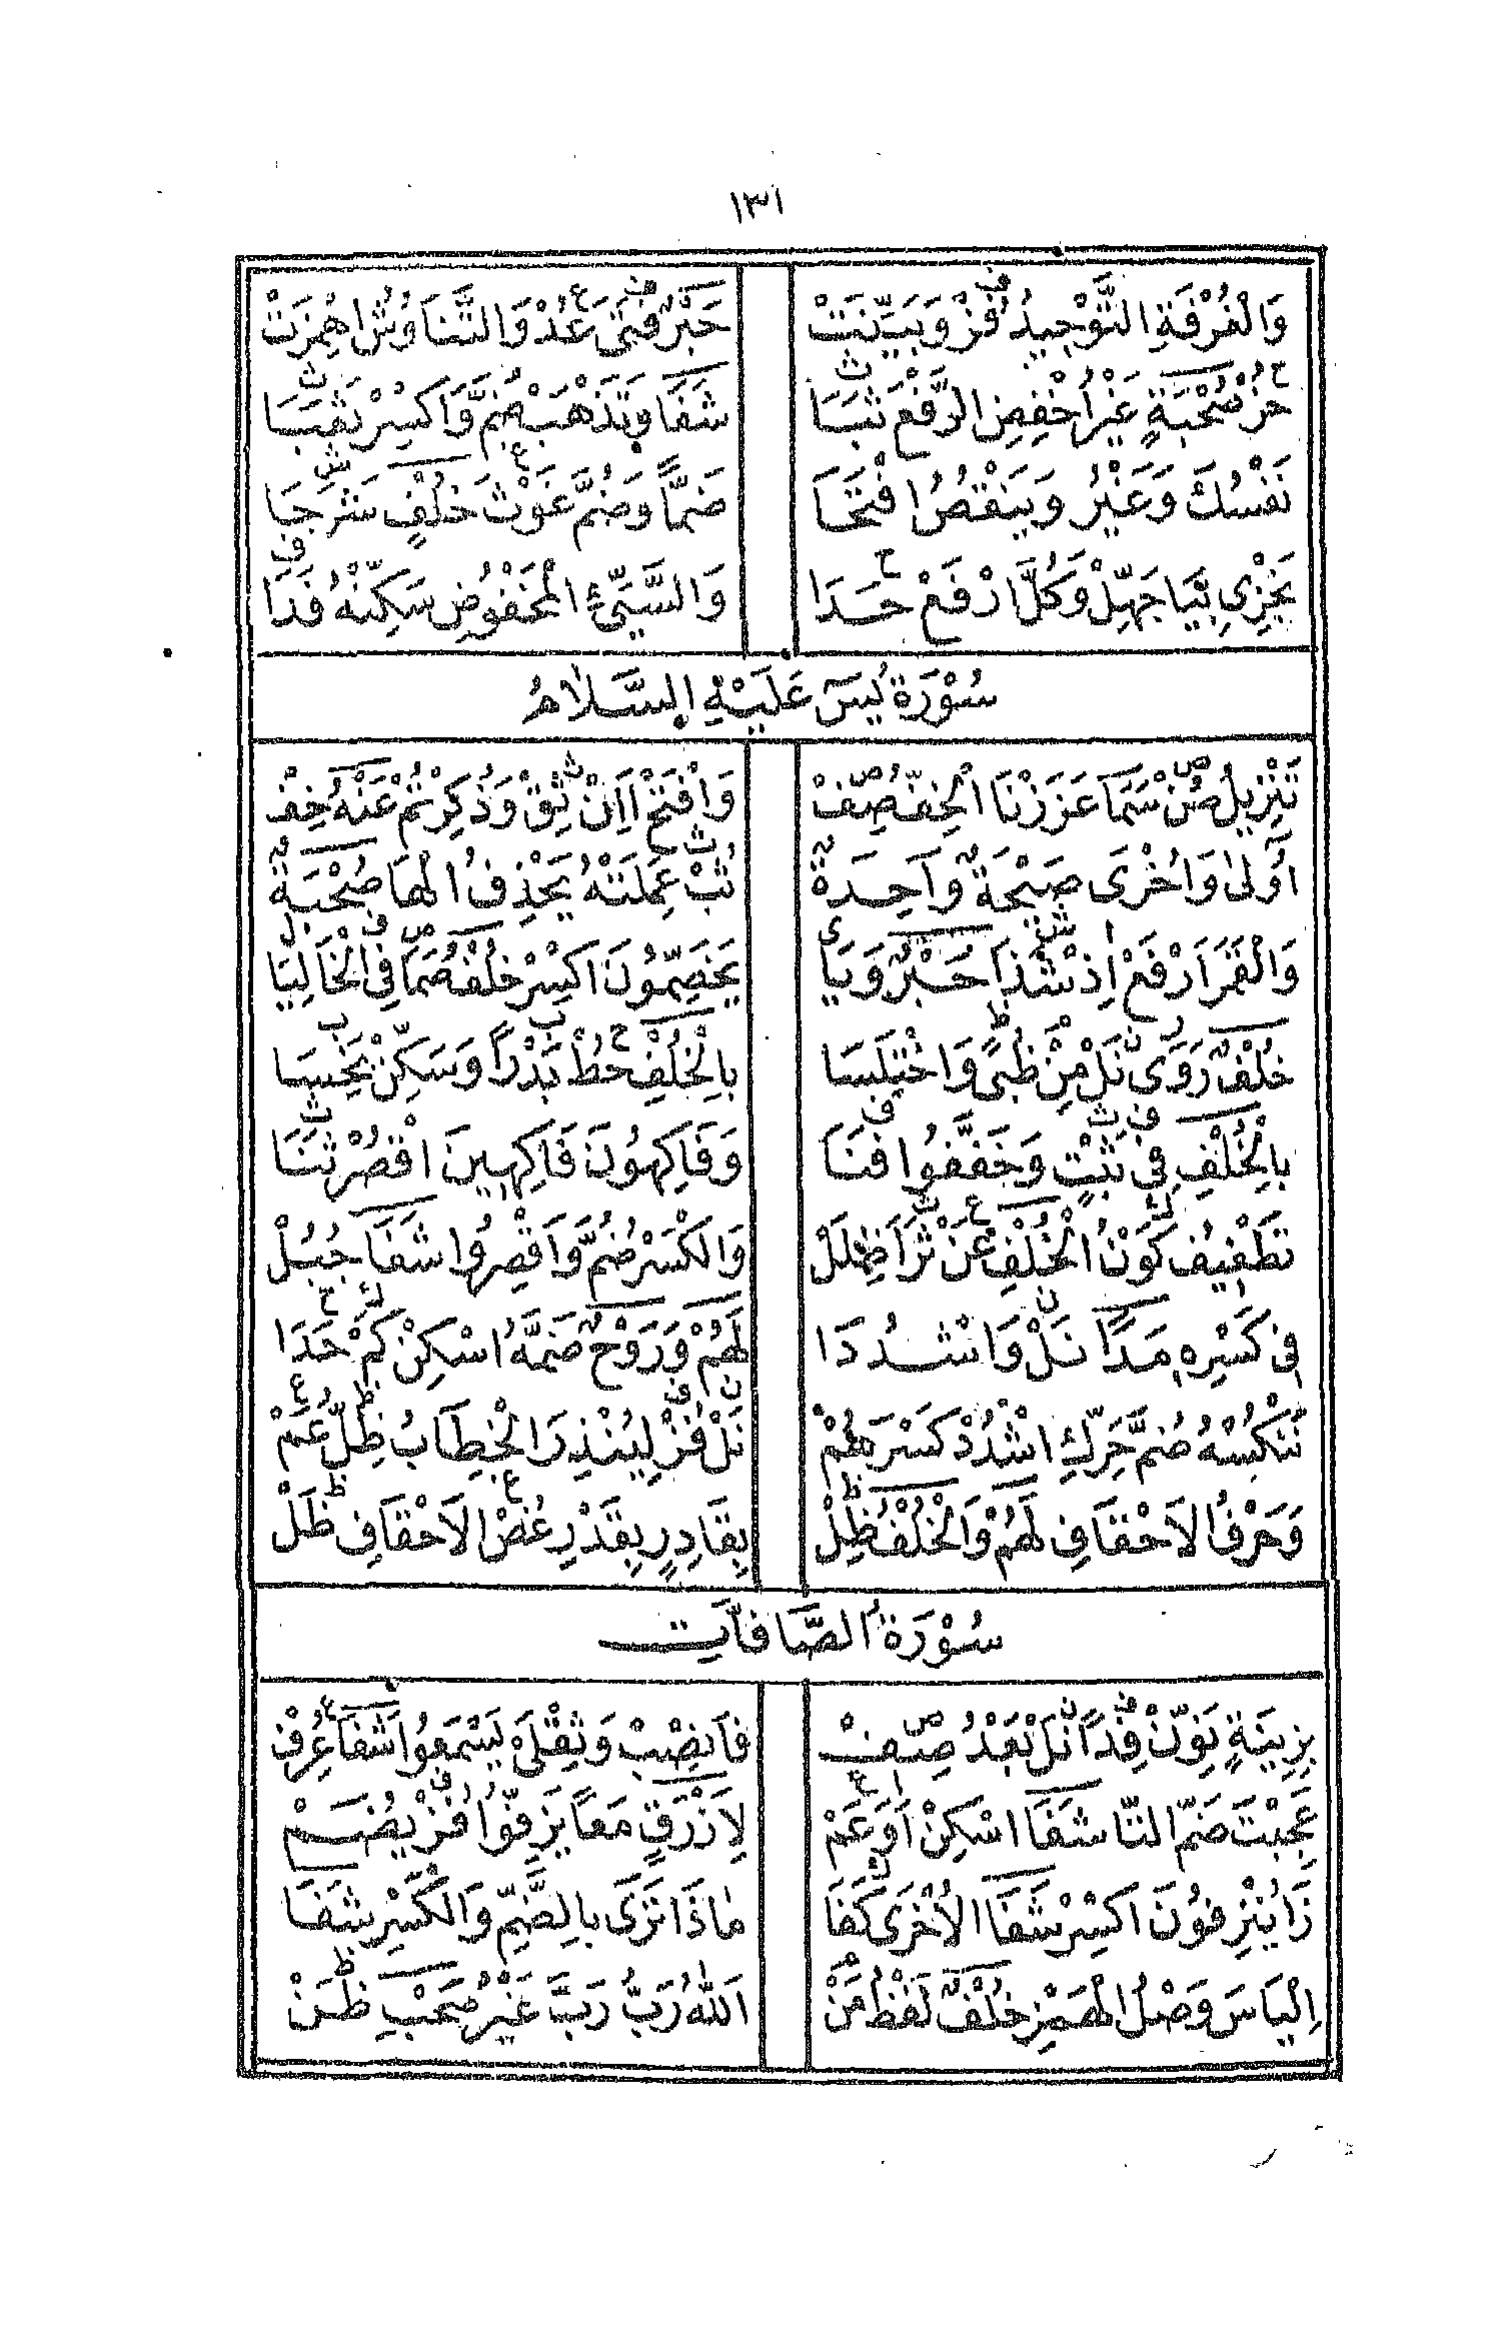 ١٣١
وَالْغُرْفَةِ التَّوْحِيدُ فُزْ وَبَيِّنَتْ حَبْرٌ فَتًى عَدْ وَالتَّنَاوُشُ اهُمِزَتْ
حُزْ صُحْبَةٍ غَيْرُ اخْفِضِ الرَّفْعَ ثَبَا شَفَا وَتَذْهَبْ ضُمَّ وَاكْسِرْ ثَغَبَا
نَفْسُكَ وَغَيْرُ وَيَنْقُصُ افْتَحَا ضَمًّا وَضُمَّ غَوْثَ خُلْفٍ شَرَحَا
يَجْزِي بِيَا جَهِّلْ وَكُلَّ ارْفَعْ حَدَا وَالسَّيِّئِ الْمَخْفُوضِ سَكِّنْهُ فَدَا
سُوْرَةُ يٰسٓ عَلَيْهِ السَّلَامُ
تَنْزِيلُ صُنْ سَمَا عَزَزْنَا الْخِفُّ صِفْ وَافْتَحْ اَاِنْ ثِقْ وَذُكِرْتُمْ عَنْهُ خِفْ
اُولٰى وَاُخْرَى صَيْحَةٌ وَاحِدَةٌ ثُبْ عَمِلَتْهُ يَحْذِفُ الْهَا صُحْبَةٌ
وَالْقَمَرَ ارْفَعْ اِذْ شَذَا حَبْرٌ وَيَا يَخَصِّمُونَ اكْسِرْ خُلْفُ صَمَّا فِي الْخَا لِيَا
خُلْفٌ رَوَى نَلْ مِنْ ظُبًى وَاخْتَلَسَا بِالْخُلْفِ حُطْ بَدْرًا وَسَكِّنْ بَخَسَا
بِالْخُلْفِ فِي ثَبْتٍ وَخَفَّفُوا فَنَا وَفَاكِهُونَ فَاكِهِينَ اقْصُرْ ثَنَا
تَطْفِيفُ كَوْنُ الْخُلْفِ عَنْ ثَرَا ظُلَلْ وَالْكَسْرَ ضُمَّ وَاقْصِرُوا شَفَا جُبُلْ
فِي كَسْرِهِ مَدًا نَلْ وَاشْدُدَا لَهُمْ وَرَوْحٌ ضَمَّهُ اسْكِنْ كَمْ حَدَا
نَنْكُسْهُ ضُمَّ حَرِّكِ اشْدُدْ كَسْرَ هُمْ نَلْ فُزْ لِيُنْذِرَ الْخِطَابُ ظِلُّ عَمْ
وَحَرْفُ الْاَحْقَافِ لَهُمْ وَالْخُلْفُ ظِلْ بِقَادِرٍ يِقْدِرُ غُصْ الْاَحْقَافِ ظَلْ
سُوْرَةُ الصَّافَّاتِ
بِزِينَةٍ نَوِّنْ فِدًا نَلْ بَعْدُ صِفْ فَانْصِبْ وَثِقْلَيْ يَسْمَعُوا شَفَا عُرِفْ
عَجِبْتَ ضَمُّ التَّا شَفَا اسْكِنْ اَوَ عَمْ لَا اَزْرَقٍ مَعًا يَزِفُّوا فُزْ بِضَمْ
زَا يُنْزِفُونَ اكْسِرْ شَفَا الْاُخْرَى كَفَا مٰاذَا تَرَى بِالضَّمِّ وَالْكَسْرِ شَفَا
اِلْيَاسَ وَصْلُ الْهَمْزِ خُلْفٌ لَفْظُ مَنْ اَللّٰهُ رَبُّ رَبَّ غَيْرُ صَحْبِ ظَنْ